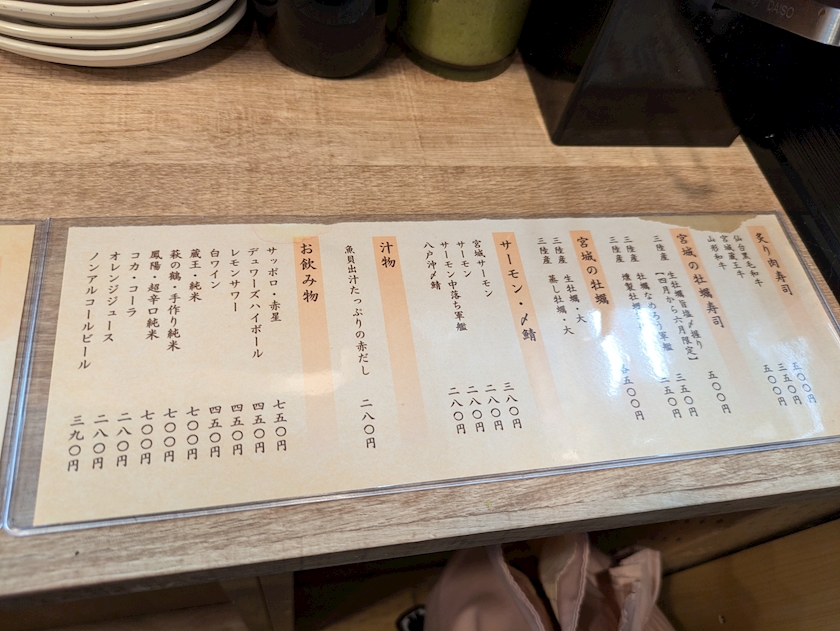 炙り肉寿司
仙台黒毛和牛 五〇〇円
宮城蔵王牛 三五〇円
山形和牛 五〇〇円
宮城の牡蠣寿司
三陸産 生牡蠣旨塩〆握り 五〇〇円
【四月から六月限定】
三陸産 牡蠣なめろう軍艦 三五〇円
三陸産 燻製牡蠣 二五〇円
宮城の牡蠣
三陸産 生牡蠣・大 各五〇〇円
三陸産 蒸し牡蠣・大
サーモン・〆鯖
宮城サーモン 三八〇円
サーモン 二八〇円
サーモン中落ち軍艦 二八〇円
八戸沖〆鯖 二八〇円
汁物
魚貝出汁たっぷりの赤だし 二八〇円
お飲み物
サッポロ・赤星 七五〇円
デュワーズハイボール 四五〇円
レモンサワー 四五〇円
白ワイン 四五〇円
蔵王・純米 七〇〇円
萩の鶴・手作り純米 七〇〇円
鳳陽・超辛口純米 七〇〇円
コカ・コーラ 二八〇円
オレンジジュース 二八〇円
ノンアルコールビール 三九〇円
DAISO